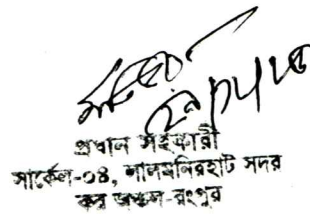 প্রধান সহকারী
সার্কেল-০৪, লালমনিরহাট সদর
কর অঞ্চল-রংপুর